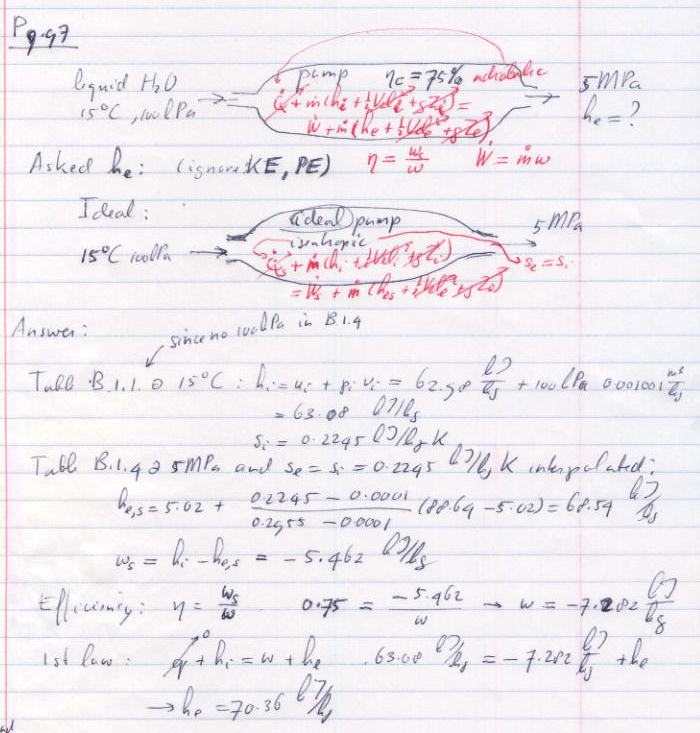 P 9.97
liquid H2O
15°C, 100kPa
pump ηc = 75% adiabatic
Q̇ + ṁ(hi + ½Veli² + gZi) =
Ẇ + ṁ(he + ½Vele² + gZe)
5 MPa
he = ?
Asked he: (ignore KE, PE) η = ws/w Ẇ = ṁw
Ideal:
15°C 100kPa
ideal pump
isentropic
Q̇s + ṁ(hi + ½Veli² + gZi)
= Ẇs + ṁ(hes + ½Vele² + gZe)
5 MPa
se = si
Answer:
since no 100kPa in B.1.4
Table B.1.1 @ 15°C: hi = ui + pi vi = 62.98 kJ/kg + 100kPa 0.001001 m³/kg
= 63.08 kJ/kg
si = 0.2245 kJ/kg K
Table B.1.4 @ 5MPa and se = si = 0.2245 kJ/kg K interpolated:
he,s = 5.02 + (0.2245 - 0.0001)/(0.2955 - 0.0001) (88.64 - 5.02) = 68.54 kJ/kg
ws = hi - he,s = -5.462 kJ/kg
Efficiency: η = ws/w 0.75 = -5.462/w → w = -7.282 kJ/kg
1st law: q⁰ + hi = w + he . 63.08 kJ/kg = -7.282 kJ/kg + he
→ he = 70.36 kJ/kg